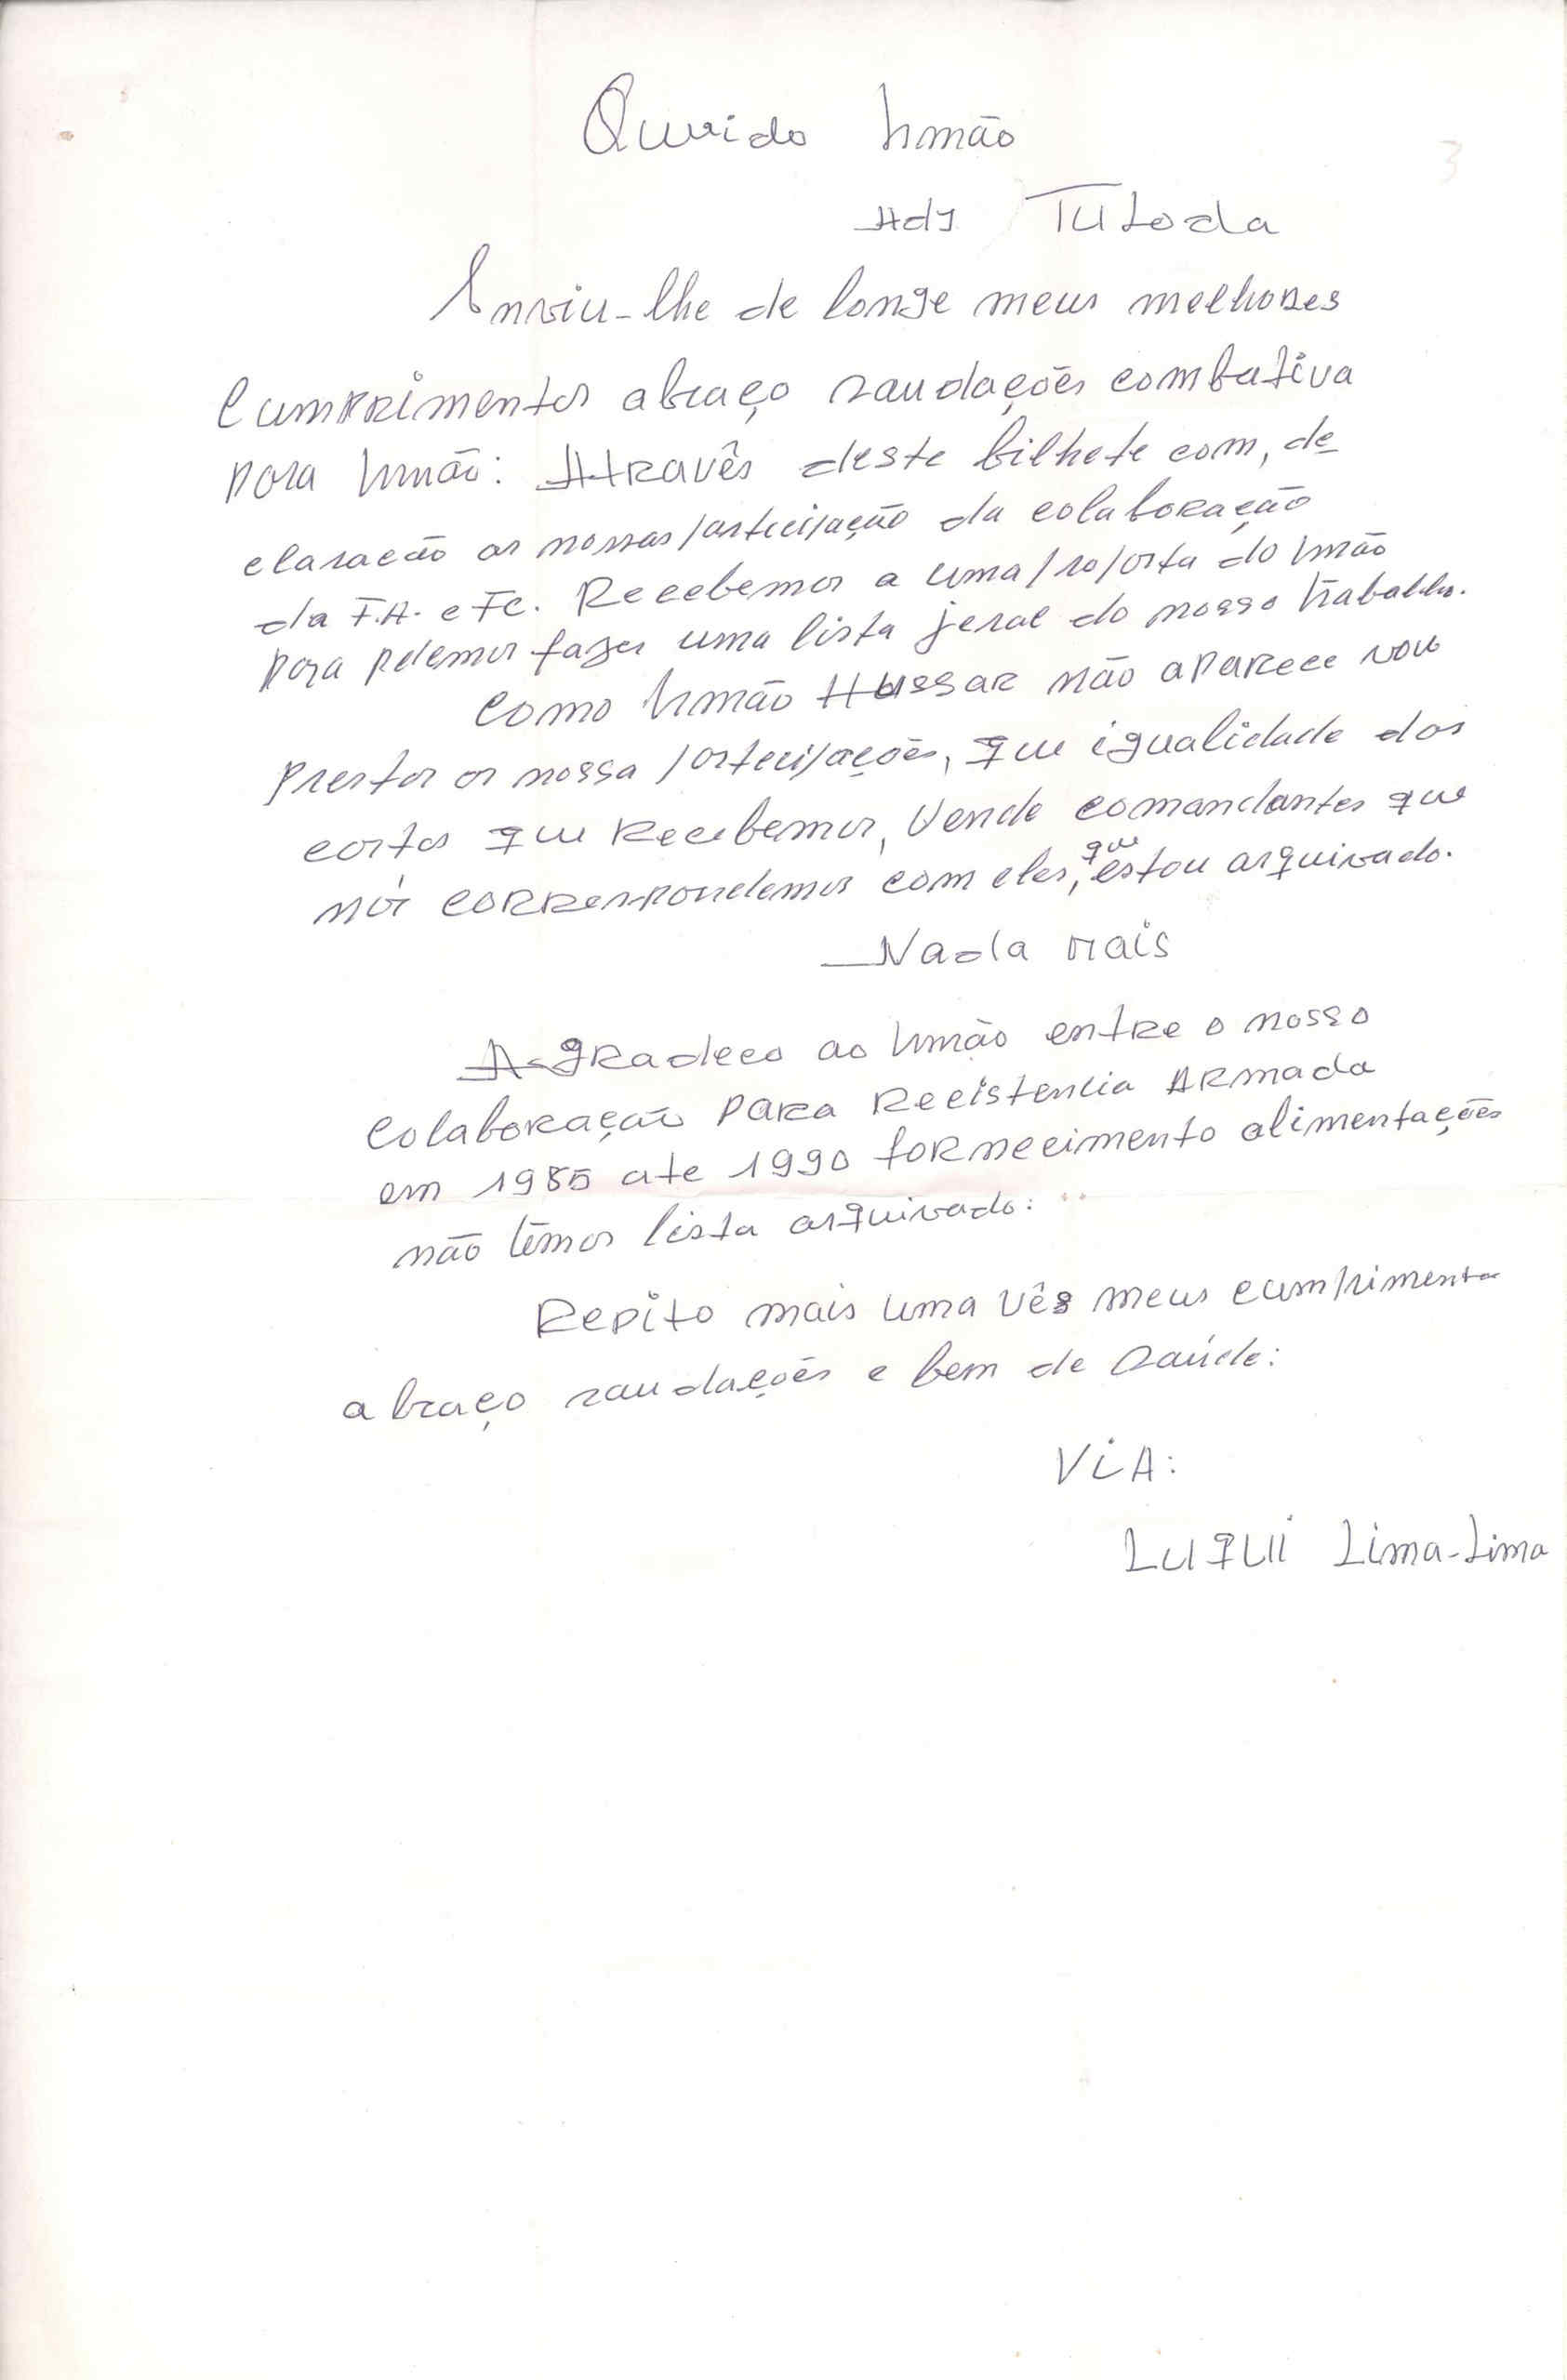 Querido Irmão
Adj Tuloda
Enviu-lhe de longe meus melhores
Cumprimentos abraço saudações combativa
para Irmão: Através deste bilhete com, de
claracão as nossas participação da colaboração
da F.A. e FC. Recebemos a uma proposta do Irmão
para pdemos fazer uma lista jeral do nosso trabalho.
Como Irmão Hussar não aparece vou
prestar os nossa partecipações, que igualidade dos
cartas que Recebemos, Vende comandantes que
nós correspondemos com eles, que estou arquivado.
Nada mais
Agradeco ao Irmão entre o nosso
Colaboração para Recistencia Armada
em 1985 ate 1990 fornecimento alimentações
não têmos lista arquivado:
Repito mais uma vês meus cumprimento
abraço saudações e bem de saúde:
ViA:
Luqui Lima-Lima
3